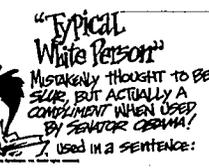 "Typical
White Person"
MISTAKENLY THOUGHT TO BE
SLUR, BUT ACTUALLY A
COMPLIMENT WHEN USED
BY SENATOR OBAMA!
USED IN A SENTENCE: